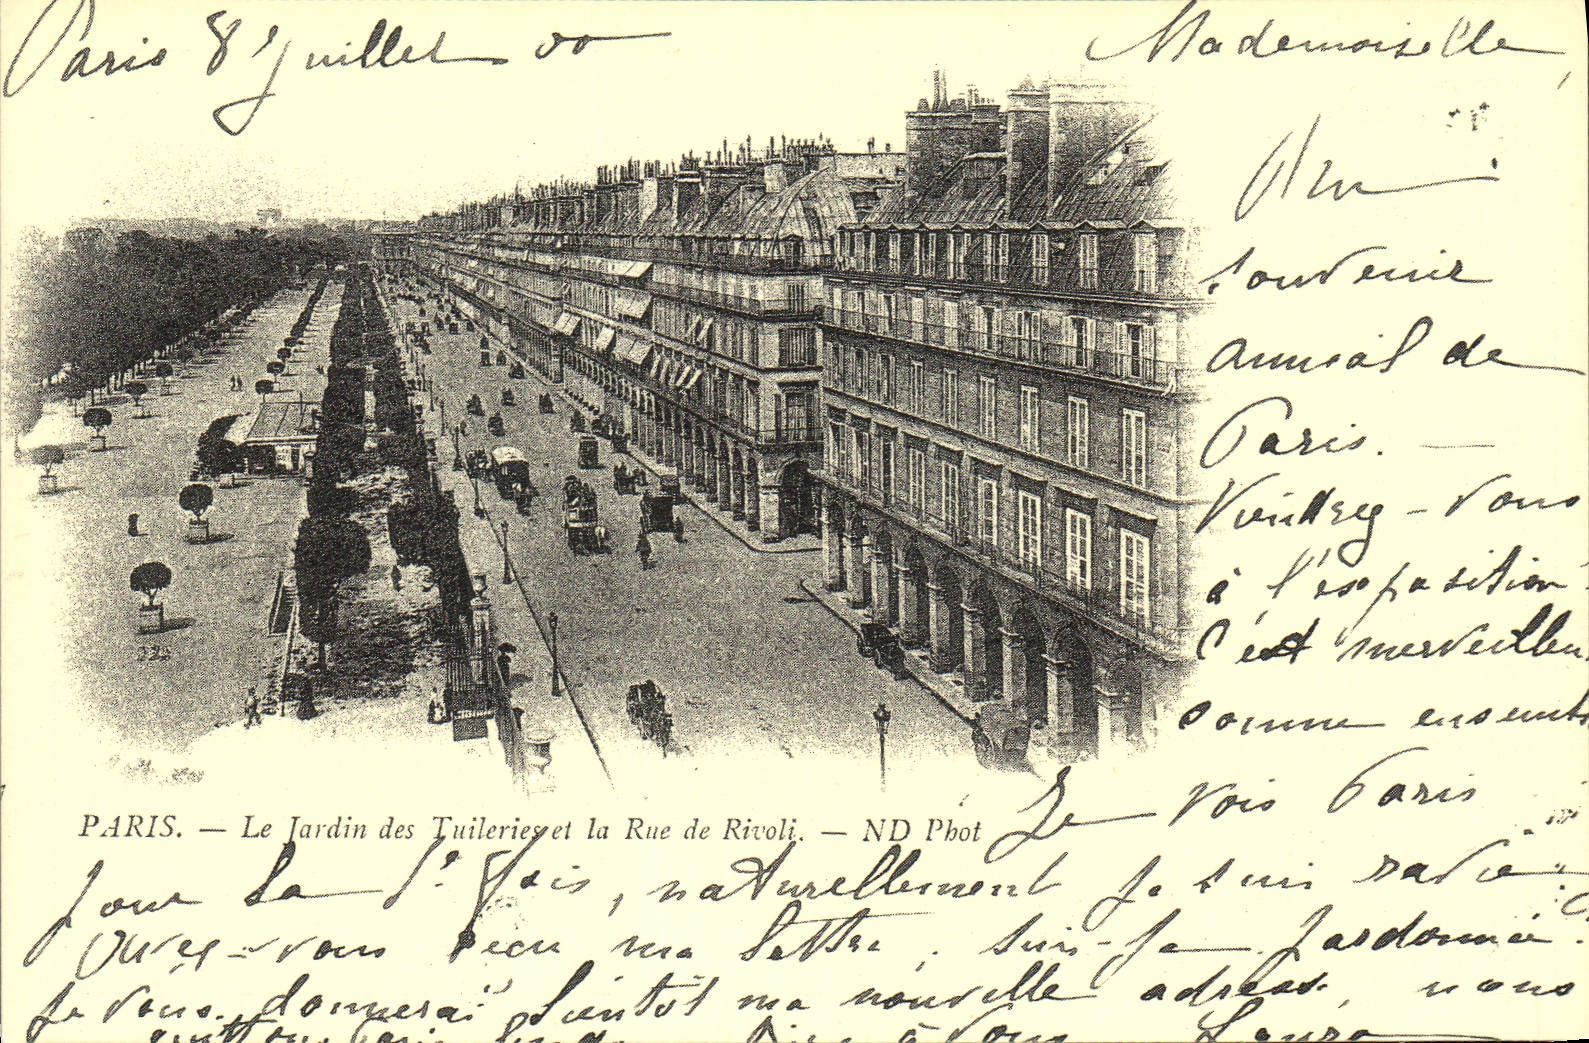 Paris 8 Juillet 00
Mademoiselle,
Un
souvenir
amical de
Paris. —
Viendrez-vous
à l'exposition
C'est merveilleu
comme ensemb
Je vois Paris
PARIS. — Le Jardin des Tuileries et la Rue de Rivoli. — ND Phot
pour la 1e fois, naturellement je suis ravie
Avez-vous reçu ma lettre, suis-je pardonnée.
Je vous donnerai bientôt ma nouvelle adress, nous
quittons Paris à vous Laura
224